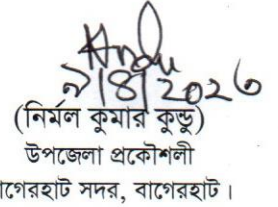 ৯/৪/২০২৬
(নির্মল কুমার কুন্ডু)
উপজেলা প্রকৌশলী
বাগেরহাট সদর, বাগেরহাট।